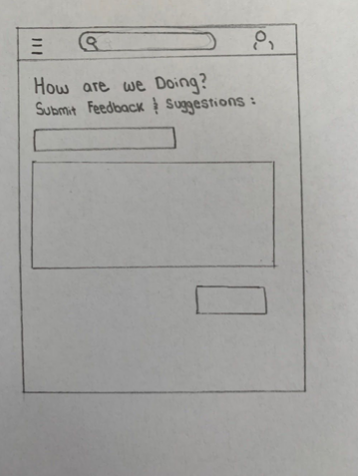 How are we Doing?
Submit Feedback & Suggestions :